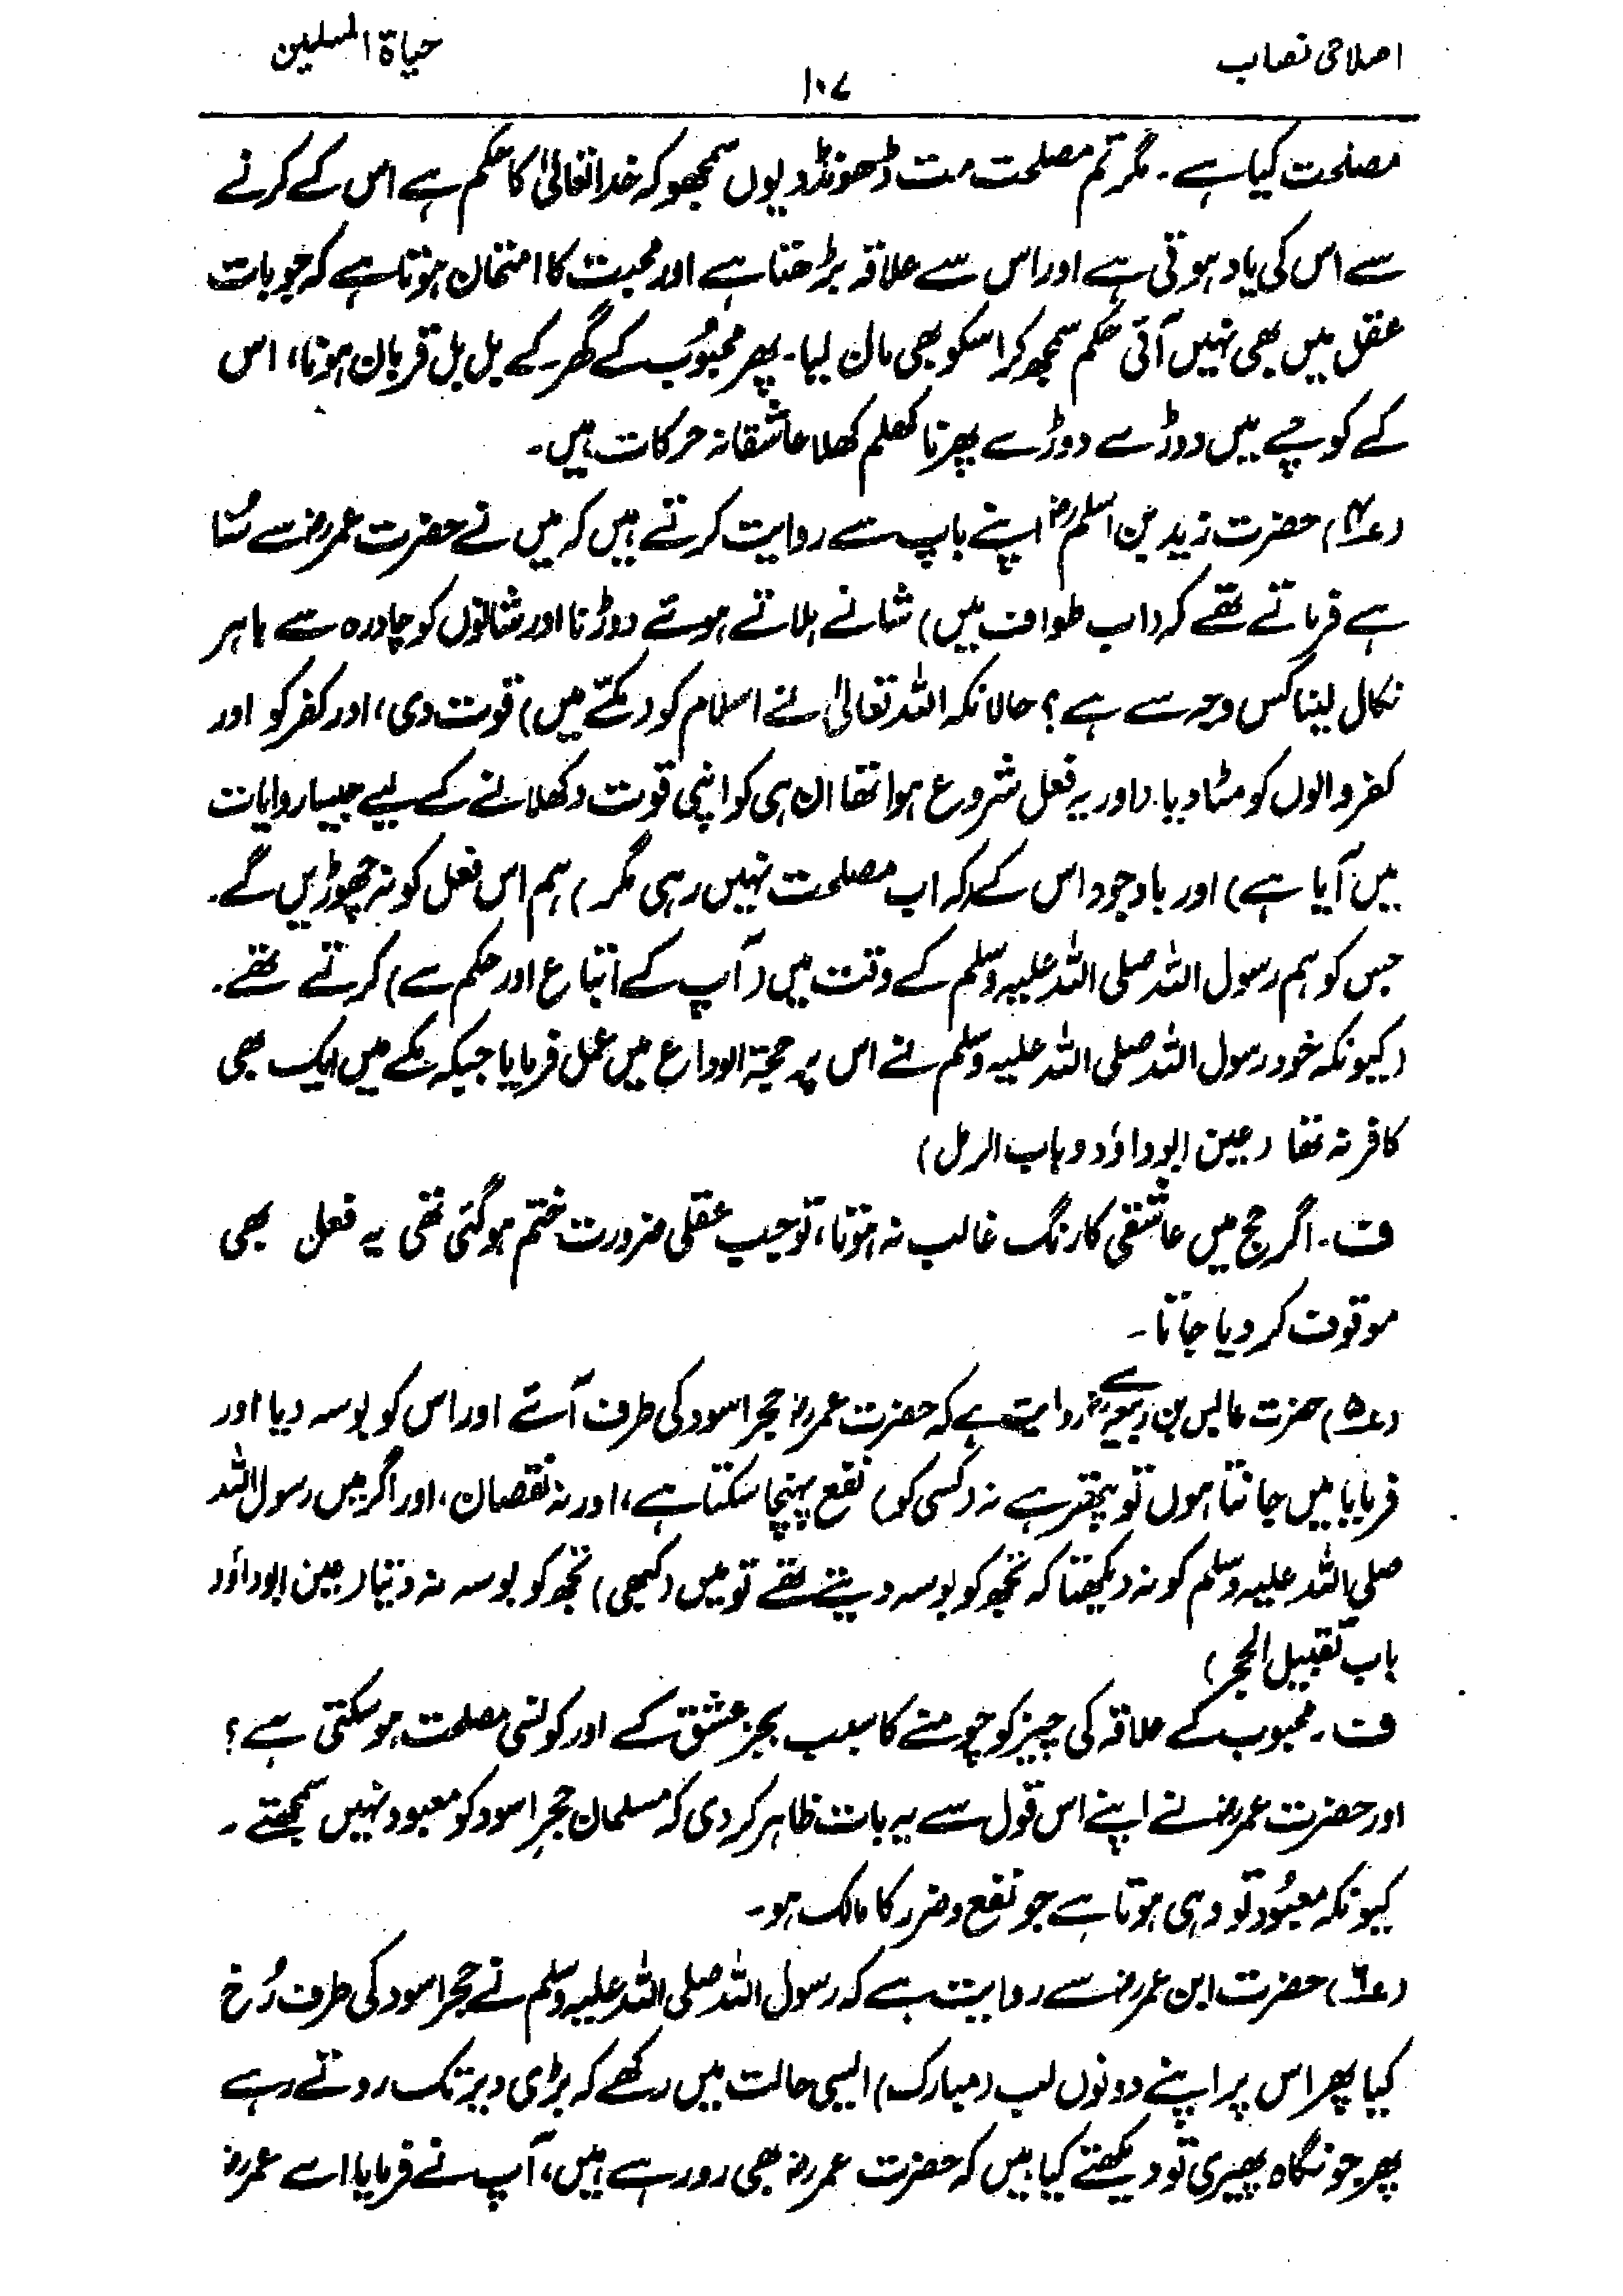 اصلاحی نصاب
۱۰۷
حیاۃ المسلمین
مصلحت کیا ہے۔ مگر تم مصلحت مت ڈھونڈو یوں سمجھو کہ خدا تعالیٰ کا حکم ہے اس کے کرنے
سے اس کی یاد ہوتی ہے اور اس سے علاقہ بڑھتا ہے اور محبت کا امتحان ہوتا ہے کہ جو بات
عقل میں بھی نہیں آئی حکم سمجھ کر اسکو بھی مان لیا۔ پھر محبُوب کے گھر کے بل بل قربان ہونا، اس
کے کوچے میں دوڑے دوڑے پھرنا کھلم کھلا عاشقانہ حرکات ہیں۔
(۴؎) حضرت زید بن اسلمؓ اپنے باپ سے روایت کرتے ہیں کہ میں نے حضرت عمرؓ سے سُنا
ہے فرماتے تھے کہ (اب طواف میں) شانے ہلاتے ہوئے دوڑنا اور شانوں کو چادرہ سے باہر
نکال لینا کس وجہ سے ہے؟ حالانکہ اللہ تعالیٰ نے اسلام کو (مکّے میں) قوت دی، اور کفر کو اور
کفر والوں کو مٹا دیا (اور یہ فعل شروع ہوا تھا ان ہی کو اپنی قوت دکھلانے کے لیے جیسا روایات
میں آیا ہے) اور باوجود اس کے (کہ اب مصلحت نہیں رہی مگر) ہم اس فعل کو نہ چھوڑیں گے۔
جس کو ہم رسول اللہ صلی اللہ علیہ وسلم کے وقت میں (آپ کے اتباع اور حکم سے) کرتے تھے۔
(کیونکہ خود رسول اللہ صلی اللہ علیہ وسلم نے اس پر حجۃ الوداع میں عمل فرمایا جبکہ مکے میں ایک بھی
کافر نہ تھا (عین ابوداؤد وباب الرمل)
ف۔ اگر حج میں عاشقی کا رنگ غالب نہ ہوتا، تو جب عقلی ضرورت ختم ہو گئی تھی یہ فعل بھی
موقوف کر دیا جاتا۔
(۵؎) حضرت عابس بن ربیعہؓ سے روایت ہے کہ حضرت عمرؓ حجر اسود کی طرف آئے اور اس کو بوسہ دیا اور
فرمایا میں جانتا ہوں تو پتھر ہے نہ (کسی کو) نفع پہنچا سکتا ہے، اور نہ نقصان، اور اگر میں رسول اللہ
صلی اللہ علیہ وسلم کو نہ دیکھتا کہ تجھ کو بوسہ دیتے تھے تو میں (کبھی) تجھ کو بوسہ نہ دیتا (عین ابوداؤد
باب تقبیل الحجر)
ف۔ محبوب کے علاقہ کی چیز کو چومنے کا سبب بجز عشق کے اور کونسی مصلحت ہو سکتی ہے؟
اور حضرت عمرؓ نے اپنے اس قول سے یہ بات ظاہر کر دی کہ مسلمان حجرِ اسود کو معبود نہیں سمجھتے۔
کیونکہ معبُود تو وہی ہوتا ہے جو نفع وضرر کا مالک ہو۔
(۶؎) حضرت ابن عمرؓ سے روایت ہے کہ رسول اللہ صلی اللہ علیہ وسلم نے حجر اسود کی طرف رُخ
کیا پھر اس پر اپنے دونوں لب (مبارک) ایسی حالت میں رکھے کہ بڑی دیر تک روتے رہے
پھر جو نگاہ پھیری تو دیکھتے کیا ہیں کہ حضرت عمرؓ بھی رو رہے ہیں، آپ نے فرمایا اے عمرؓ